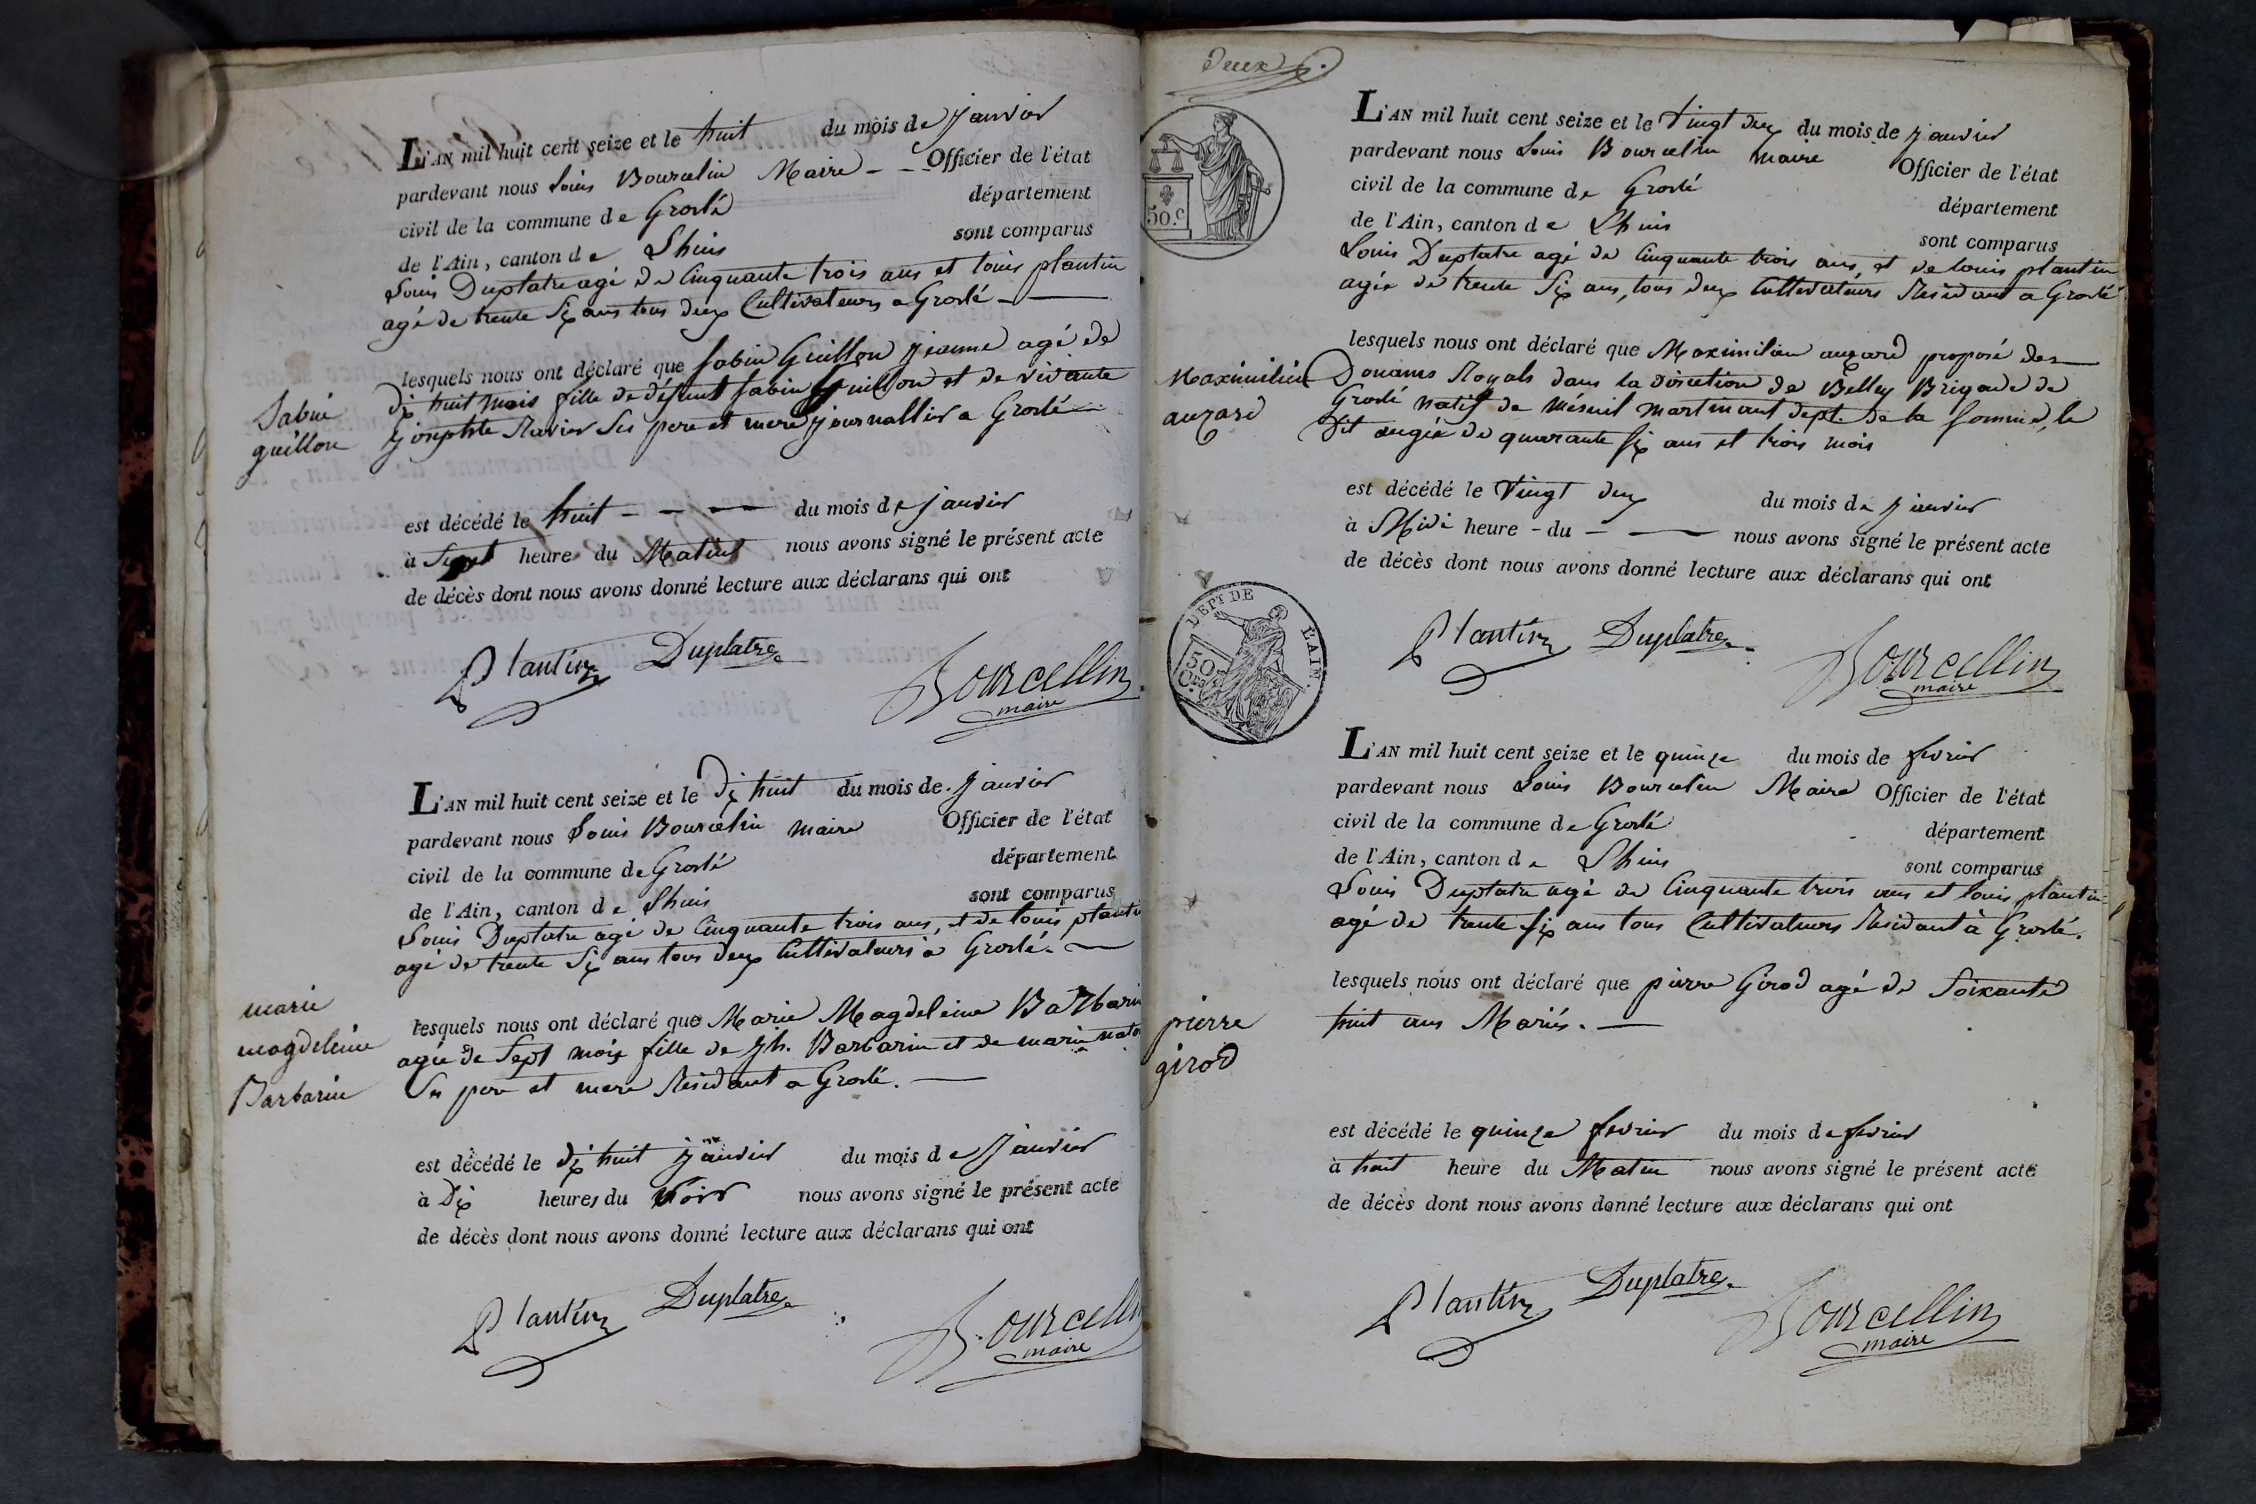 L'AN mil huit cent seize et le huit du mois de janvier
pardevant nous Louis Bourcelin Maire Officier de l'état
civil de la commune de Groslé département
de l'Ain, canton de Lhuis sont comparus
Louis Duplatre agé de Cinquante trois ans et louis plantin
agé de trente Six ans tous deux Cultivateurs a Groslé
lesquels nous ont déclaré que Sabin Guillon jeanne agé de
dix huit mois fille de défunt Sabin Guillon et de vivante
josephte Ravier Ses pere et mere journallier a Groslé
Sabin
guillon
est décédé le huit du mois de janvier
à Sept heure du Matin nous avons signé le présent acte
de décès dont nous avons donné lecture aux déclarans qui ont
Plantin Duplatre
Bourcellin
maire
L'AN mil huit cent seize et le dix huit du mois de janvier
pardevant nous Louis Bourcelin maire Officier de l'état
civil de la commune de Groslé département
de l'Ain, canton de Lhuis sont comparus
Louis Duplatre agé de Cinquante trois ans, et de louis planti
agé de trente Six ans tous deux Cultivateurs a Groslé
lesquels nous ont déclaré que Marie Magdeleine Barbarin
agée de Sept mois fille de jh. Barbarin et de marie
Ses pere et mere Residant a Groslé.
marie
magdeleine
Barbarin
est décédé le dix huit janvier du mois de janvier
à Dix heures du Soir nous avons signé le présent acte
de décès dont nous avons donné lecture aux déclarans qui ont
Plantin Duplatre
Bourcelli
maire
Deux
50.c
L'AN mil huit cent seize et le Vingt deux du mois de janvier
pardevant nous Louis Bourcelin maire Officier de l'état
civil de la commune de Groslé département
de l'Ain, canton de Lhuis sont comparus
Louis Duplatre agé de Cinquante trois ans, et de louis plantin
agée de trente Six ans, tous deux Cultivateurs Residant a Groslé
lesquels nous ont déclaré que Maximilien auzard proposé des
Douanes Royals dans la direction de Belley Brigade de
Groslé natif de mésnil martinant dept. de la Somme, le
dit augée de quarante six ans et trois mois
Maximilien
auzard
est décédé le Vingt deux du mois de janvier
à Midi heure - du - nous avons signé le présent acte
de décès dont nous avons donné lecture aux déclarans qui ont
DEPT DE L'AIN.
50
Plantin Duplatre
Bourcellin
maire
L'AN mil huit cent seize et le quinze du mois de fevrier
pardevant nous Louis Bourcelin Maire Officier de l'état
civil de la commune de Groslé département
de l'Ain, canton de Lhuis sont comparus
Louis Duplatre agé de Cinquante trois ans et louis plantin
agé de trente six ans tous Cultivateurs Residant à Groslé.
lesquels nous ont déclaré que pierre Girod agé de Soixante
huit ans Mariés.
pierre
girod
est décédé le quinze fevrier du mois de fevrier
à huit heure du Matin nous avons signé le présent acte
de décès dont nous avons donné lecture aux déclarans qui ont
Plantin Duplatre
Bourcellin
maire